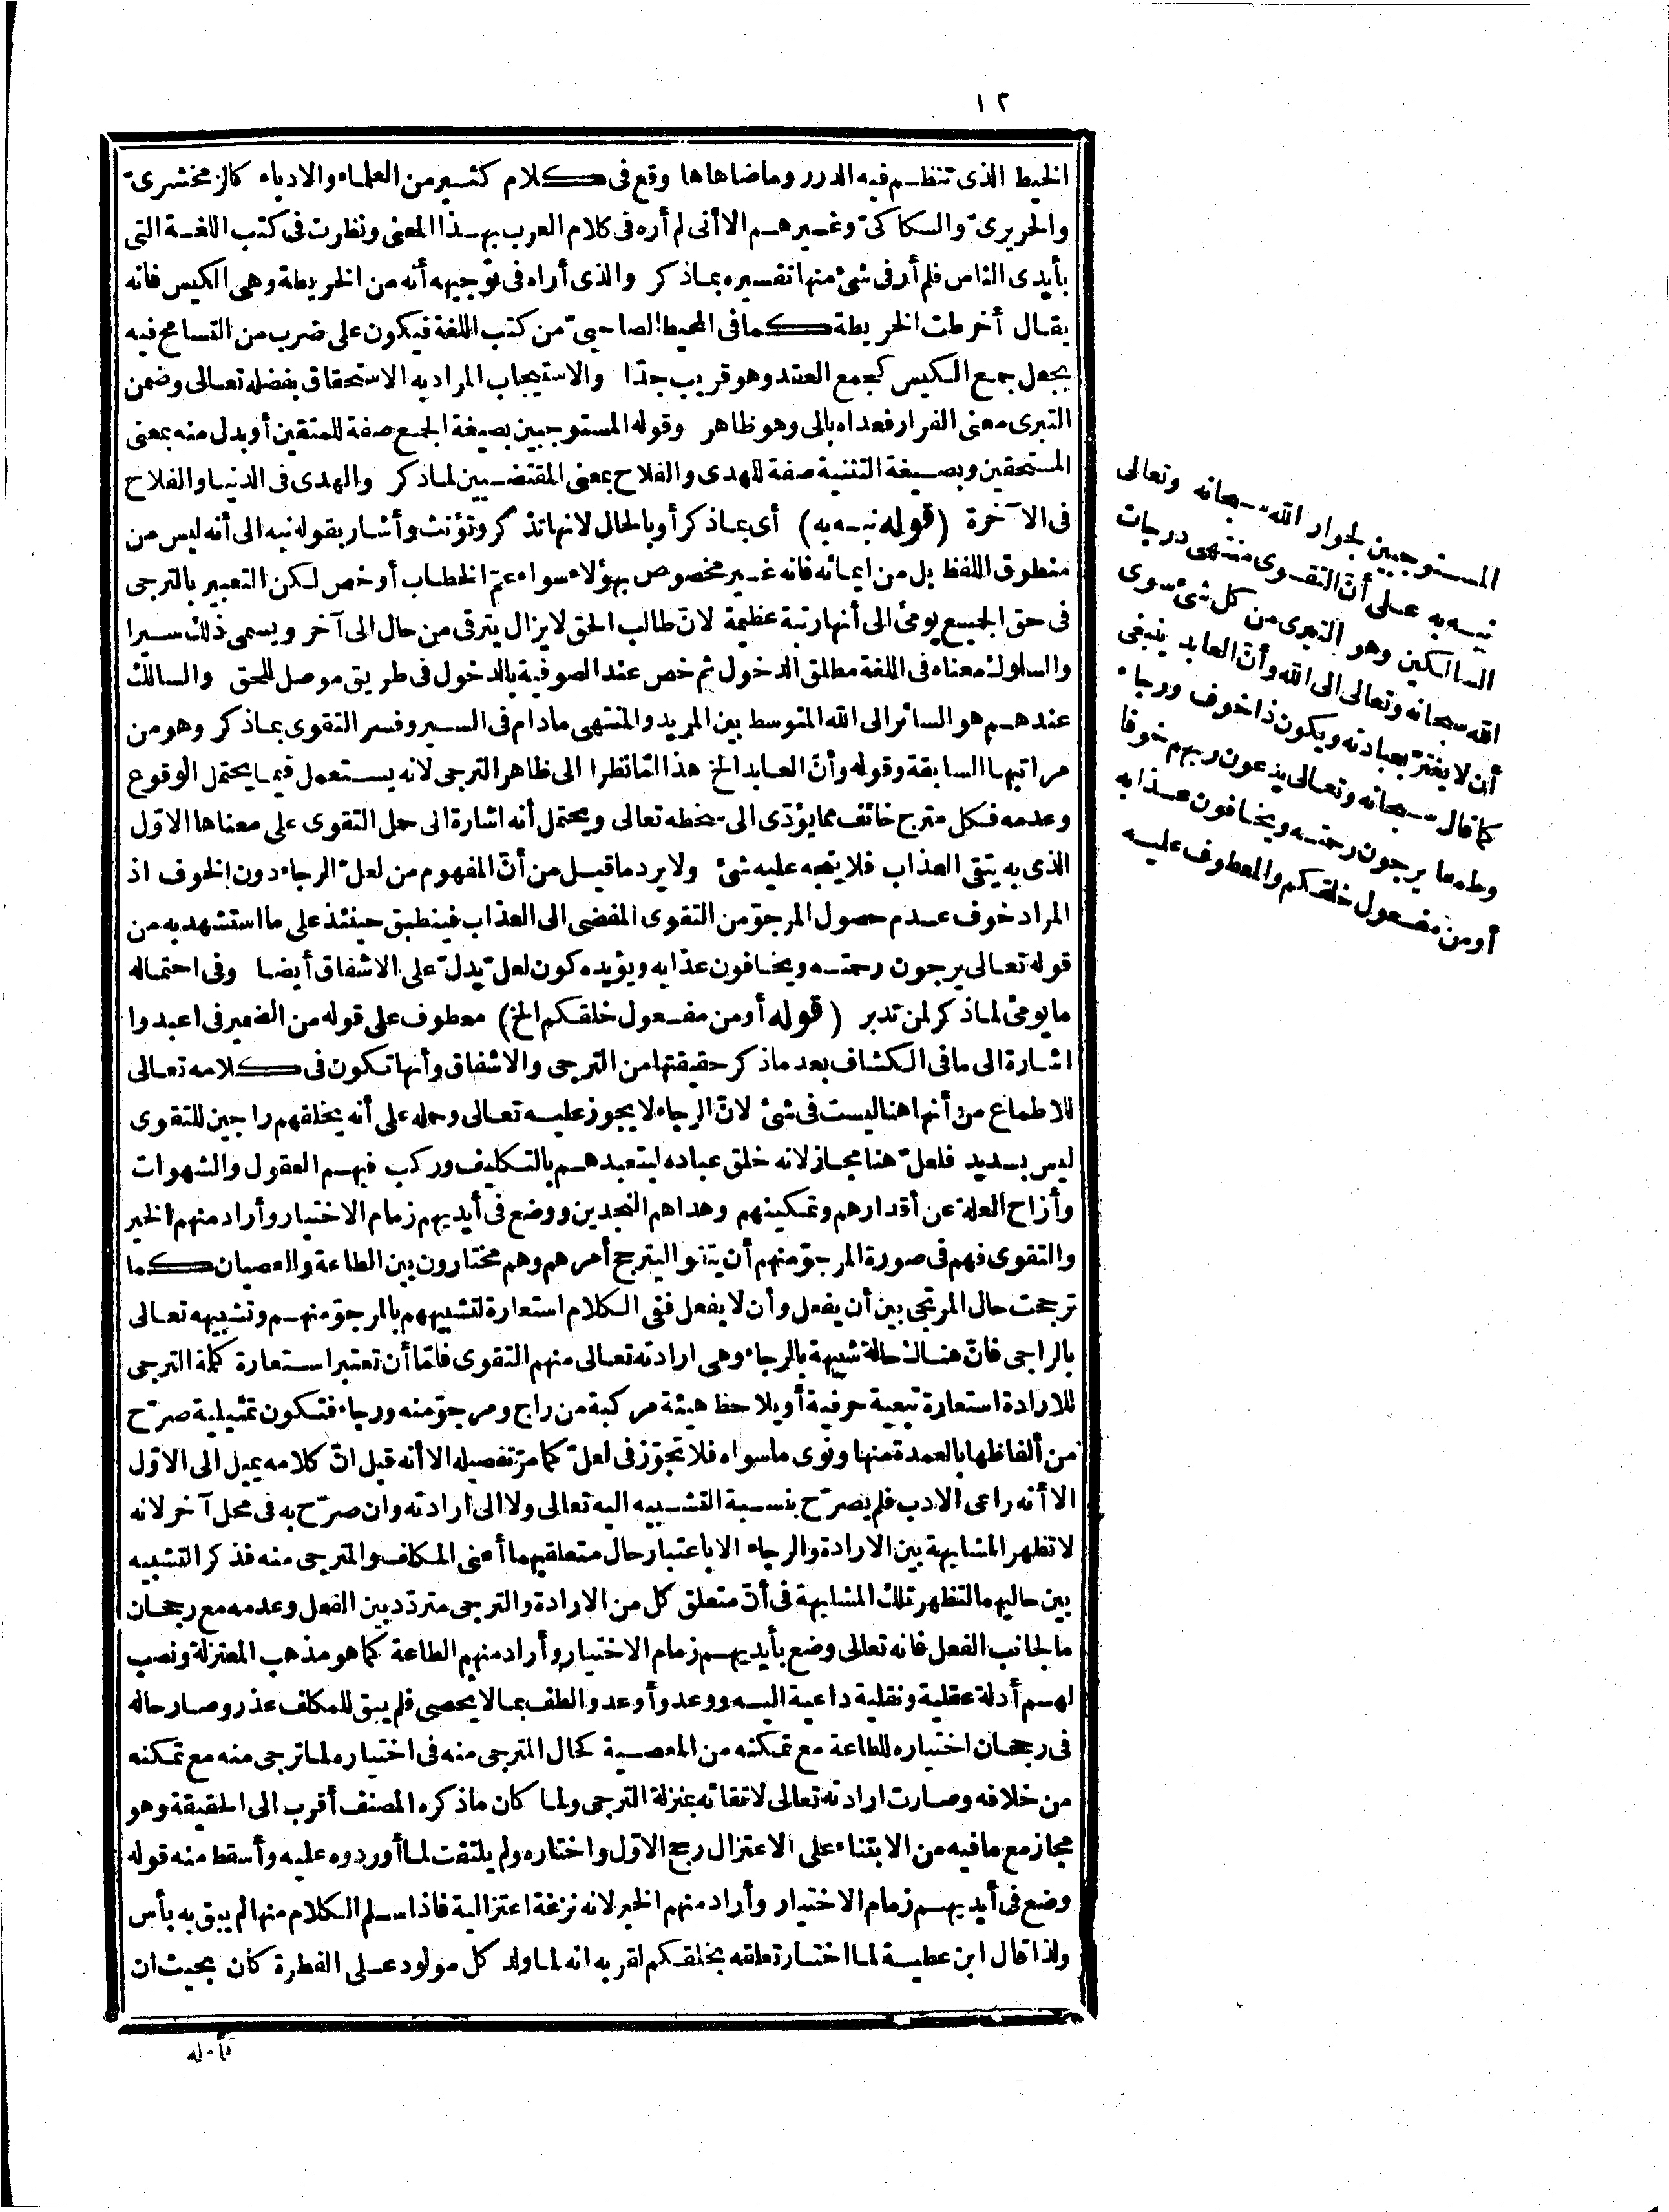 ١٢
الخيط الذى تنظم فيه الدرر وما ضاهاها وقع فى كلام كثير من العلماء والادباء كالزمخشرىّ
والحريرىّ والسكاكىّ وغيرهم الا أنى لم أره فى كلام العرب بهذا المعنى ونظرت فى كتب اللغة التى
بأيدى الناس فلم أر فى شئ منها تفسيره بماذكر والذى أراه فى توجيهه أنه من الخريطة وهى الكيس فانه
يقال أخرطت الخريطة كما فى المحيط الصاحبىّ من كتب اللغة فيكون على ضرب من التسامح فيه
بجعل جمع الكيس كجمع العقد وهو قريب جدّا والاستيجاب المراد به الاستحقاق بفضله تعالى وضمن
التبرى معنى الفرار فعداه بالى وهو ظاهر وقوله المستوجبين بصيغة الجمع صفة للمتقين أو بدل منه بمعنى
المستحقين وبصيغة التثنية صفة للهدى والفلاح بمعنى المقتضيين لماذكر والهدى فى الدنيا والفلاح
فى الآخرة (قوله نبه به) أى بماذكر أو بالحال لانها تذكر وتؤنث وأشار بقوله نبه الى أنه ليس من
منطوق اللفظ بل من ايمائه فانه غير مخصوص بهؤلاء سواء عمّ الخطاب أو خص لكن التعبير بالترجى
فى حق الجميع يومئ الى أنها رتبة عظيمة لانّ طالب الحق لايزال يترقى من حال الى آخر ويسمى ذلك سيرا
والسلوك معناه فى اللغة مطلق الدخول ثم خص عند الصوفية بالدخول فى طريق موصل للحق والسالك
عندهم هو السائر الى الله المتوسط بين المريد والمنتهى مادام فى السير وفسر التقوى بماذكر وهو من
مراتبها السابقة وقوله وأنّ العابد الخ هذا امّا نظرا الى ظاهر الترجى لانه يستعمل فيما يحتمل الوقوع
وعدمه فكل مترج خائف مما يؤدّى الى سخطه تعالى ويحتمل أنه اشارة الى حمل التقوى على معناها الاوّل
الذى به يتقى العذاب فلا يتجه عليه شئ ولا يرد ما قيل من أنّ المفهوم من لعلّ الرجاء دون الخوف اذ
المراد خوف عدم حصول المرجوّ من التقوى المفضى الى العذاب فينطبق حينئذ على ما استشهد به من
قوله تعالى يرجون رحمته ويخافون عذابه ويؤيده كون لعلّ يدلّ على الاشفاق أيضا وفى احتماله
ما يومئ لماذكر لمن تدبر (قوله أو من مفعول خلقكم الخ) معطوف على قوله من الضمير فى اعبدوا
اشارة الى ما فى الكشاف بعد ماذكر حقيقتها من الترجى والاشفاق وأنها تكون فى كلامه تعالى
للاطماع من أنها هنا ليست فى شئ لانّ الرجاء لا يجوز عليه تعالى وحمله على أنه يخلقهم راجين للتقوى
ليس بسديد فلعلّ هنا مجاز لانه خلق عباده ليتعبدهم بالتكليف وركب فيهم العقول والشهوات
وأزاح العلة عن أقدارهم وتمكينهم وهداهم النجدين ووضع فى أيديهم زمام الاختيار وأراد منهم الخير
والتقوى فهم فى صورة المرجوّ منهم أن يتقوا ليترجح أمرهم وهم مختارون بين الطاعة والعصيان كما
ترجحت حال المرتجى بين أن يفعل وأن لا يفعل ففى الكلام استعارة لتشبيههم بالمرجوّ منهم وتشبيهه تعالى
بالراجى فانّ هناك حالة شبيهة بالرجاء وهى ارادته تعالى منهم التقوى فامّا أن تعتبر استعارة كلمة الترجى
للارادة استعارة تبعية حرفية أو يلاحظ هيئة مركبة من راج ومرجوّ منه ورجاء فتكون تمثيلية صرّح
من ألفاظها بالعمدة منها ونوى ما سواه فلا تجوّز فى لعلّ كما مرّ تفصيله الا أنه قيل انّ كلامه يميل الى الاوّل
الا أنه راعى الادب فلم يصرّح بنسبة التشبيه اليه تعالى ولا الى ارادته وان صرّح به فى محل آخر لانه
لا تظهر المشابهة بين الارادة والرجاء الا باعتبار حال متعلقيهما أعنى المكلف والمترجى منه فذكر التشبيه
بين حاليهما لتظهر تلك المشابهة فى أنّ متعلق كل من الارادة والترجى متردّد بين الفعل وعدمه مع رجحان
ما لجانب الفعل فانه تعالى وضع بأيديهم زمام الاختيار وأراد منهم الطاعة كما هو مذهب المعتزلة ونصب
لهم أدلة عقلية ونقلية داعية اليه ووعد وأوعد والطف بما لا يحصى فلم يبق للمكلف عذر وصار حاله
فى رجحان اختياره للطاعة مع تمكنه من المعصية كحال المترجى منه فى اختياره لما ترجى منه مع تمكنه
من خلافه وصارت ارادته تعالى لاتقائه بمنزلة الترجى ولما كان ماذكره المصنف أقرب الى الحقيقة وهو
مجاز مع ما فيه من الابتناء على الاعتزال رجح الاوّل واختاره ولم يلتفت لما أوردوه عليه وأسقط منه قوله
وضع فى أيديهم زمام الاختيار وأراد منهم الخير لانه نزغة اعتزالية فاذا سلم الكلام منها لم يبق به بأس
ولذا قال ابن عطية لما اختار تعلقه بخلقكم لقربه انه لما ولد كل مولود على الفطرة كان بحيث ان
المستوجبين لجوار الله سبحانه وتعالى
نبه به على أنّ التقوى منتهى درجات
السالكين وهو التبرى من كل شئ سوى
الله سبحانه وتعالى الى الله وأنّ العابد ينبغى
أن لا يغترّ بعبادته ويكون ذا خوف ورجاء
كما قال سبحانه وتعالى يدعون ربهم خوفا
وطمعا يرجون رحمته ويخافون عذابه
أو من مفعول خلقكم والمعطوف عليه